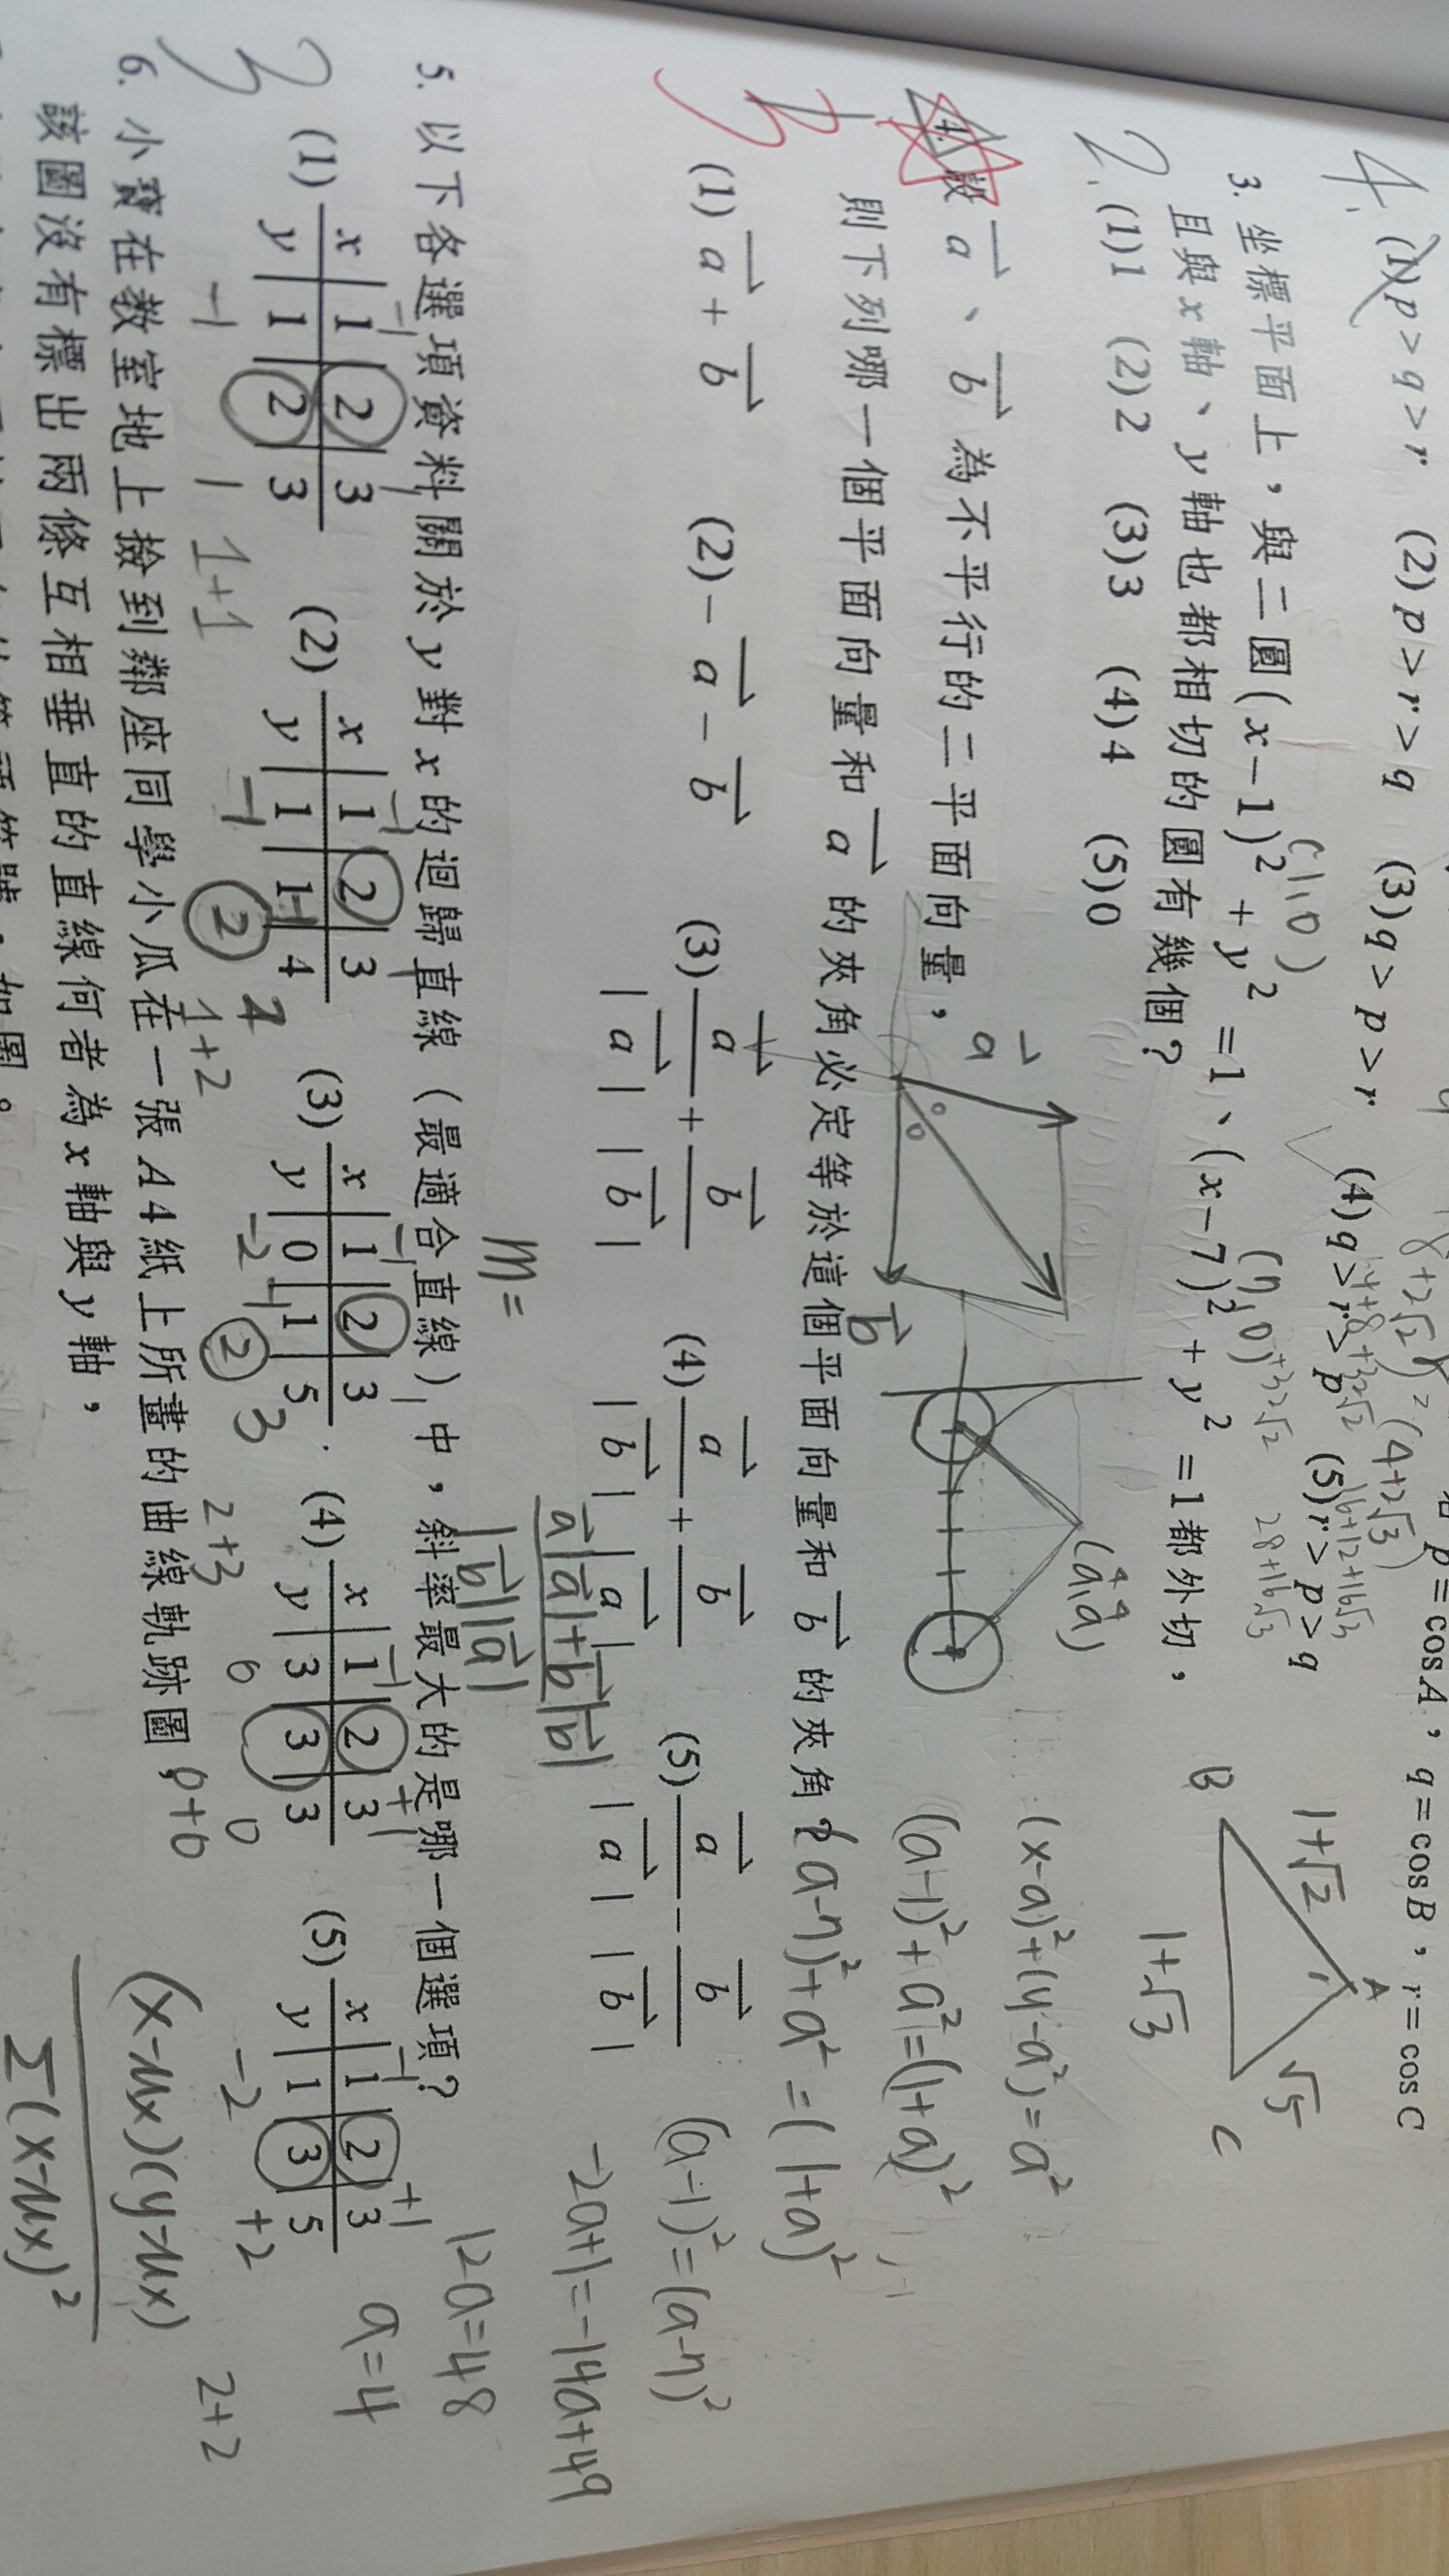 p = cos A，q = cos B，r = cos C
4. (1) p > q > r (2) p > r > q (3) q > p > r (4) q > r > p (5) r > p > q
(4+2√3)
16+12+16√3
28+16√3
A
B
C
1+√2
√5
1+√3
3. 坐標平面上，與二圓(x−1)² + y² =1、(x−7)² + y² =1都外切，
(1,0)
(7,0)
且與x軸、y軸也都相切的圓有幾個？
2. (1)1 (2)2 (3)3 (4)4 (5)0
(a,a)
4 4
(x-a)²+(y-a²)=a²
(a-1)²+a²=(1+a)²
(a-7)²+a²=(1+a)²
(a-1)²=(a-7)²
-2a+1=-14a+49
12a=48
a=4
4. 設 a、b 為不平行的二平面向量，
a
b
則下列哪一個平面向量和 a 的夾角必定等於這個平面向量和 b 的夾角？
3
(1) a + b (2) − a − b (3) a/|a| + b/|b| (4) a/|b| + b/|a| (5) a/|a| − b/|b|
a|a|+b|b|
|b||a|
m =
5. 以下各選項資料關於y對x的迴歸直線（最適合直線）中，斜率最大的是哪一個選項？
3
(1) x 1 2 3 (2) x 1 2 3 (3) x 1 2 3 (4) x 1 2 3 (5) x 1 2 3
y 1 2 3 y 1 1 4 y 0 1 5 y 3 3 3 y 1 3 5
-1 1 -1 2 -2 2 3 0 0 -2 +2
1+1 1+2 2+3 0+0 2+2
(x-μx)(y-μx)
Σ(x-μx)²
6. 小寶在教室地上撿到鄰座同學小瓜在一張A4紙上所畫的曲線軌跡圖，
該圖沒有標出兩條互相垂直的直線何者為x軸與y軸，